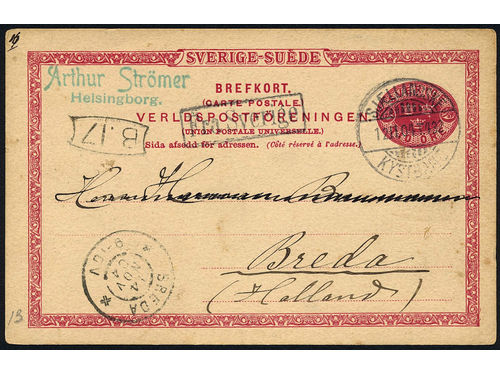 SVERIGE-SUÈDE
Arthur Strömer
Helsingborg.
BREFKORT.
(CARTE POSTALE)
VERLDSPOSTFÖRENINGEN
(UNION POSTALE UNIVERSELLE.)
Sida afsedd för adressen. (Côté réservé à l'adresse.)
Fra Sverige
B.17
KYSTB
Herrn
Breda
(Holland)
BREDA
NOV
13